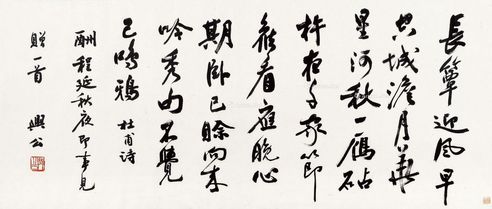 長簟迎風早
空城澹月華
星河秋一雁砧
杵夜千家節
候看應晚心
期卧已賒向来
吟秀句不覺
已鳴鴉 杜甫詩
酬程延秋夜即事見
贈一首 興公